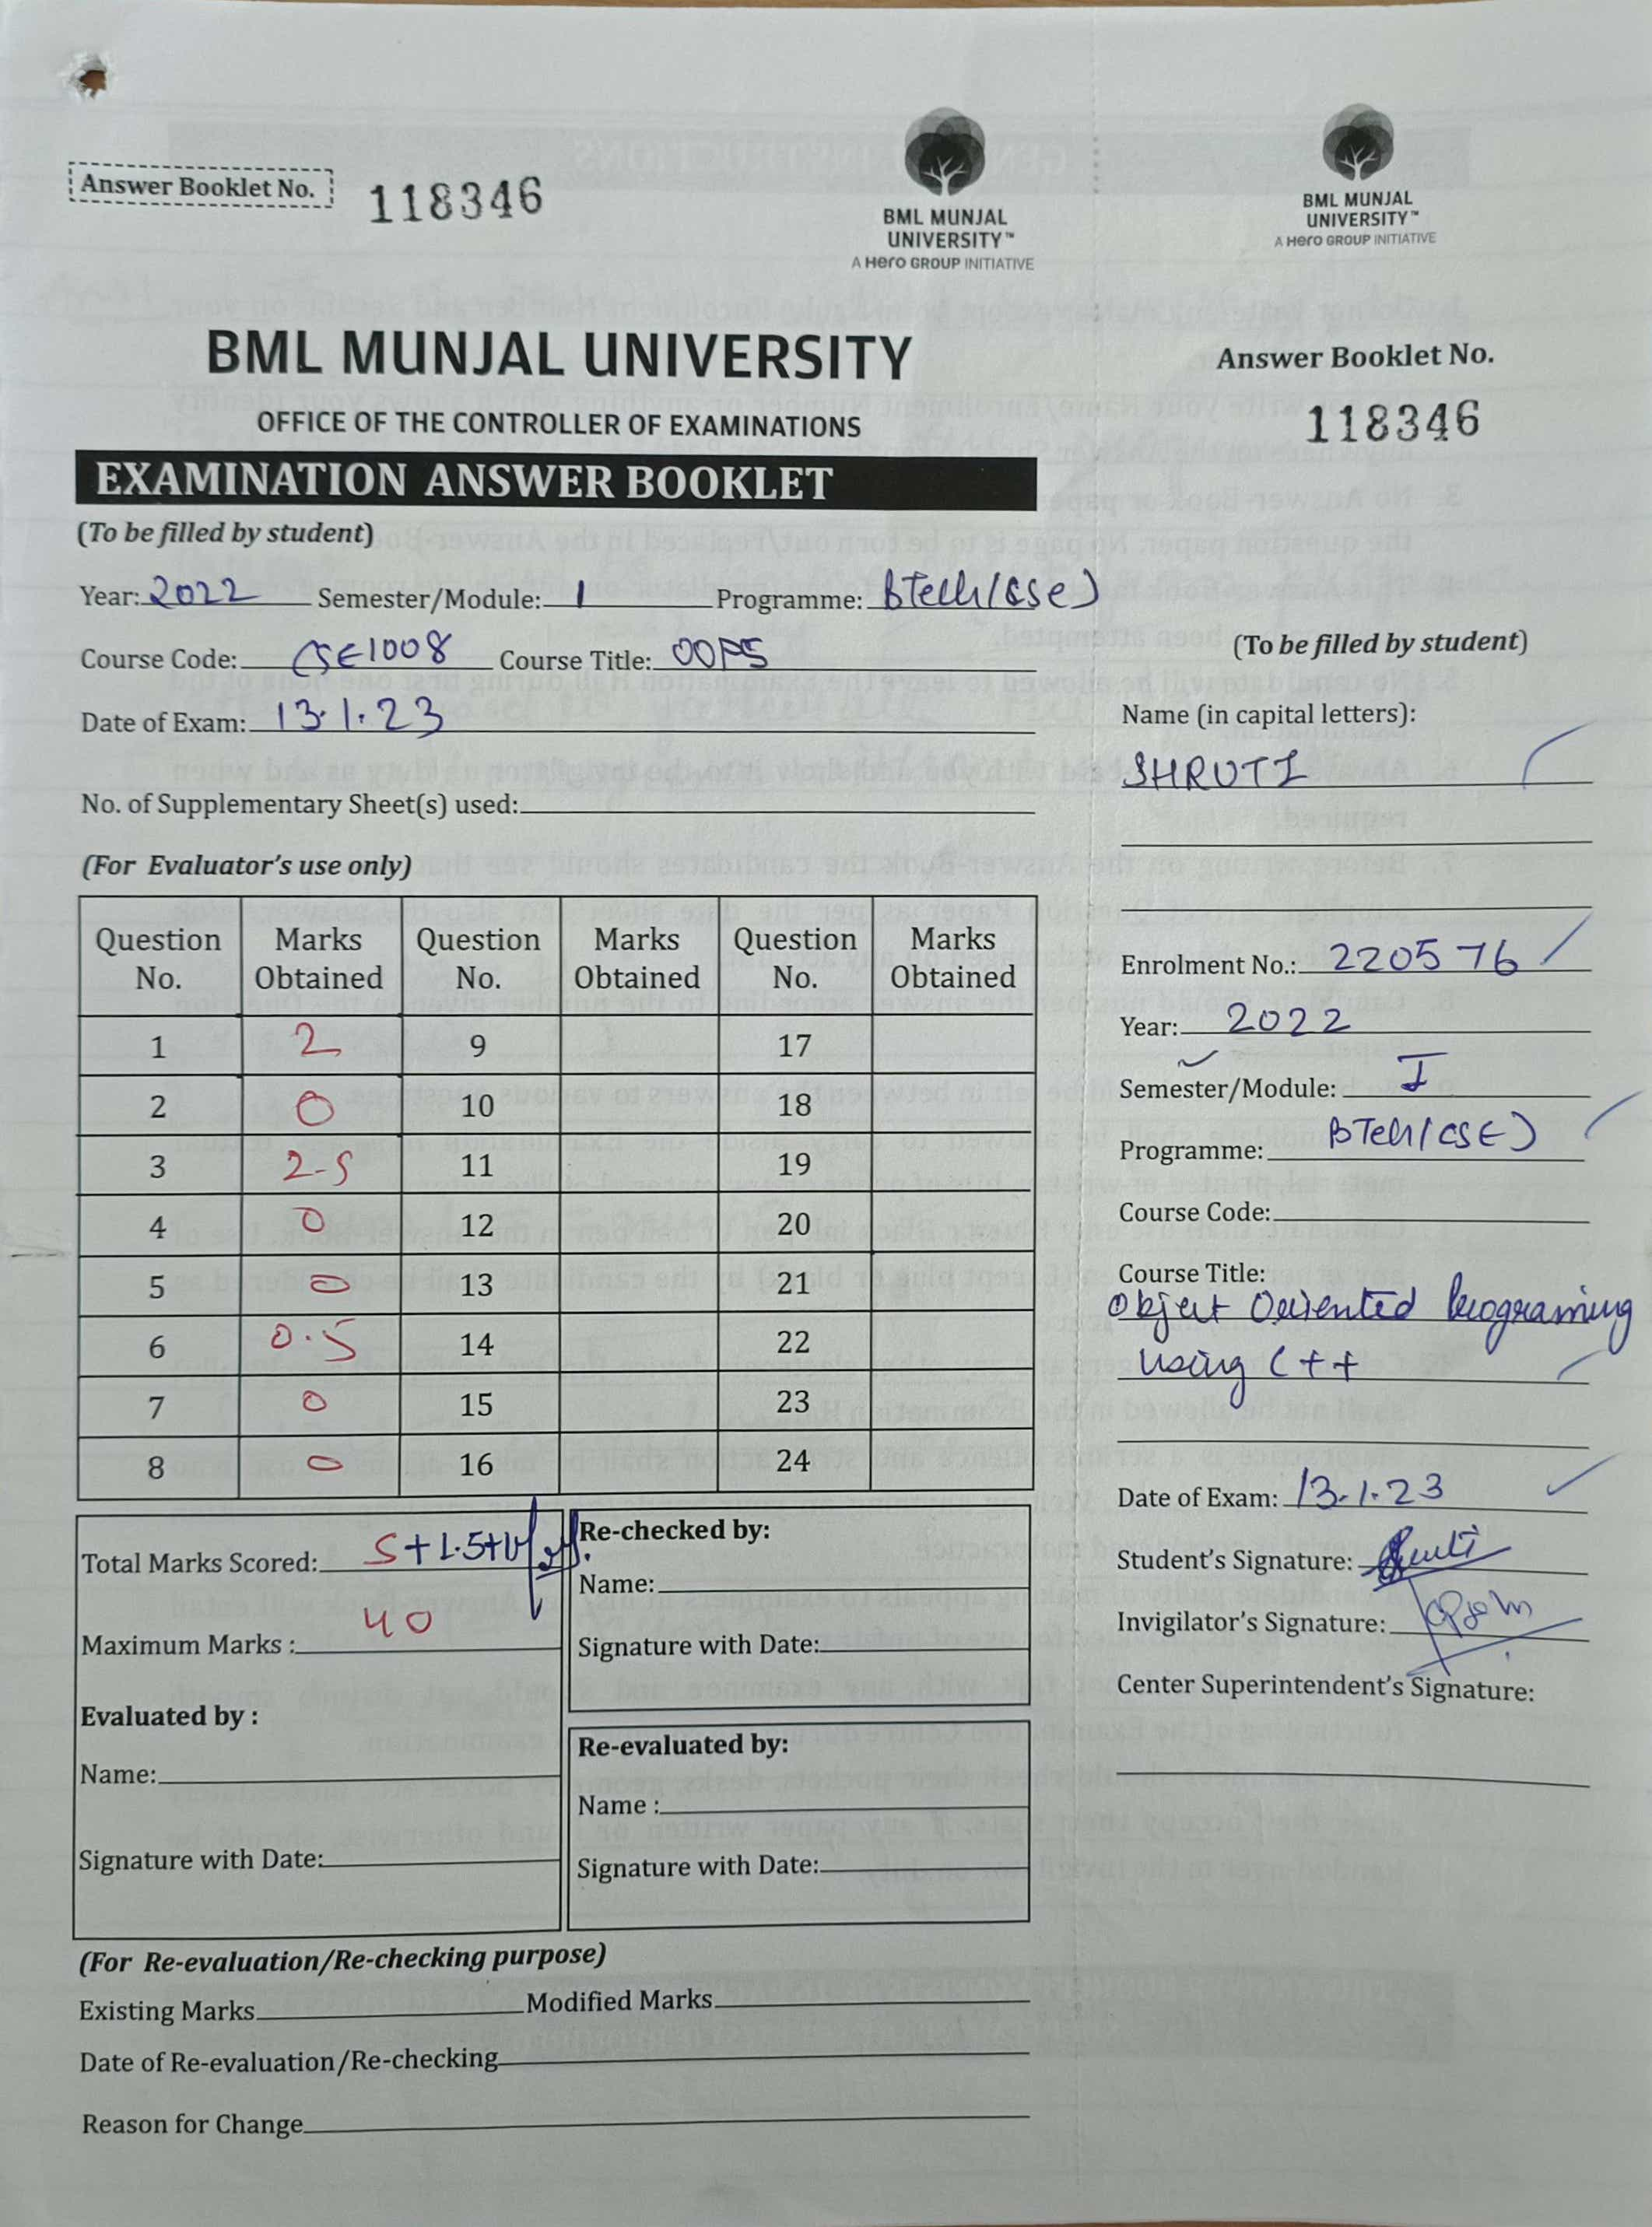 Answer Booklet No. 118346
BML MUNJAL
UNIVERSITY™
A Hero GROUP INITIATIVE
BML MUNJAL
UNIVERSITY™
A Hero GROUP INITIATIVE
BML MUNJAL UNIVERSITY
OFFICE OF THE CONTROLLER OF EXAMINATIONS
EXAMINATION ANSWER BOOKLET
(To be filled by student)
Year: 2022 Semester/Module: 1 Programme: BTech(CSE)
Course Code: CSE1008 Course Title: OOPS
Date of Exam: 13.1.23
No. of Supplementary Sheet(s) used:
(For Evaluator's use only)
Question No. Marks Obtained Question No. Marks Obtained Question No. Marks Obtained
1 2 9 17
2 0 10 18
3 2-5 11 19
4 0 12 20
5 0 13 21
6 0.5 14 22
7 0 15 23
8 0 16 24
Total Marks Scored: 5+1.5+
Maximum Marks : 40
Evaluated by :
Name:
Signature with Date:
Re-checked by:
Name:
Signature with Date:
Re-evaluated by:
Name :
Signature with Date:
(For Re-evaluation/Re-checking purpose)
Existing Marks Modified Marks
Date of Re-evaluation/Re-checking
Reason for Change
Answer Booklet No.
118346
(To be filled by student)
Name (in capital letters):
SHRUTI
Enrolment No.: 220576
Year: 2022
Semester/Module: I
Programme: BTech(CSE)
Course Code:
Course Title:
Object Oriented Programing
using C++
Date of Exam: 13.1.23
Student's Signature: Shruti
Invigilator's Signature:
Center Superintendent's Signature: